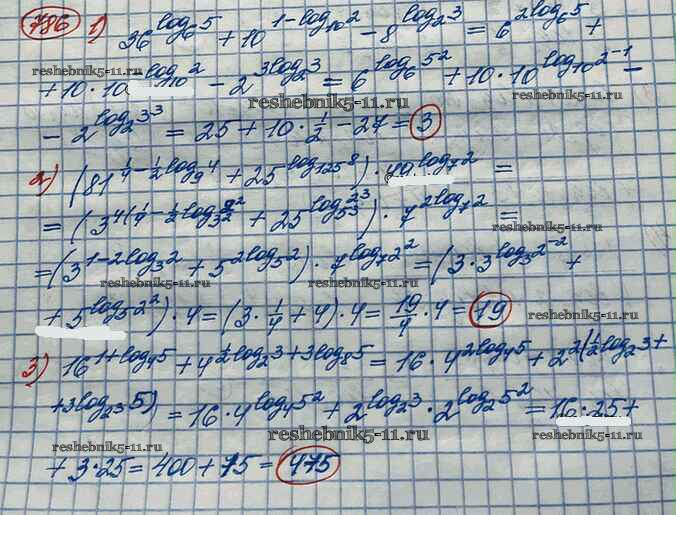 786 1) 36^{log_6 5} + 10^{1-log_{10} 2} - 8^{log_2 3} = 6^{2log_6 5} +
reshebnik5-11.ru reshebnik5-11.ru
+ 10·10^{log_{10} 2} - 2^{3log_2 3} = 6^{log_6 5^2} + 10·10^{log_{10} 2^{-1}} -
reshebnik5-11.ru
- 2^{log_2 3^3} = 25 + 10·1/2 - 27 = 3
2) (81^{1/4 - 1/2 log_9 4} + 25^{log_{125} 8})·49^{log_7 2} =
reshebnik5-11.ru reshebnik5-11.ru
= (3^{4(1/4 - 1/2 log_{3^2} 2^2} + 25^{log_{5^3} 2^3})·7^{2log_7 2} =
= (3^{1-2log_3 2} + 5^{2log_5 2})·7^{log_7 2^2} = (3·3^{log_3 2^{-2}} +
reshebnik5-11.ru reshebnik5-11.ru
+ 5^{log_5 2^2})·4 = (3·1/4 + 4)·4 = 19/4·4 = 19
reshebnik5-11.ru
3) 16^{1+log_4 5} + 4^{1/2 log_2 3 + 3log_8 5} = 16·4^{2log_4 5} + 2^{2(1/2 log_2 3 +
reshebnik5-11.ru
+ 3log_{2^3} 5)} = 16·4^{log_4 5^2} + 2^{log_2 3}·2^{log_2 5^2} = 16·25 +
reshebnik5-11.ru reshebnik5-11.ru
+ 3·25 = 400 + 75 = 475
reshebnik5-11.ru